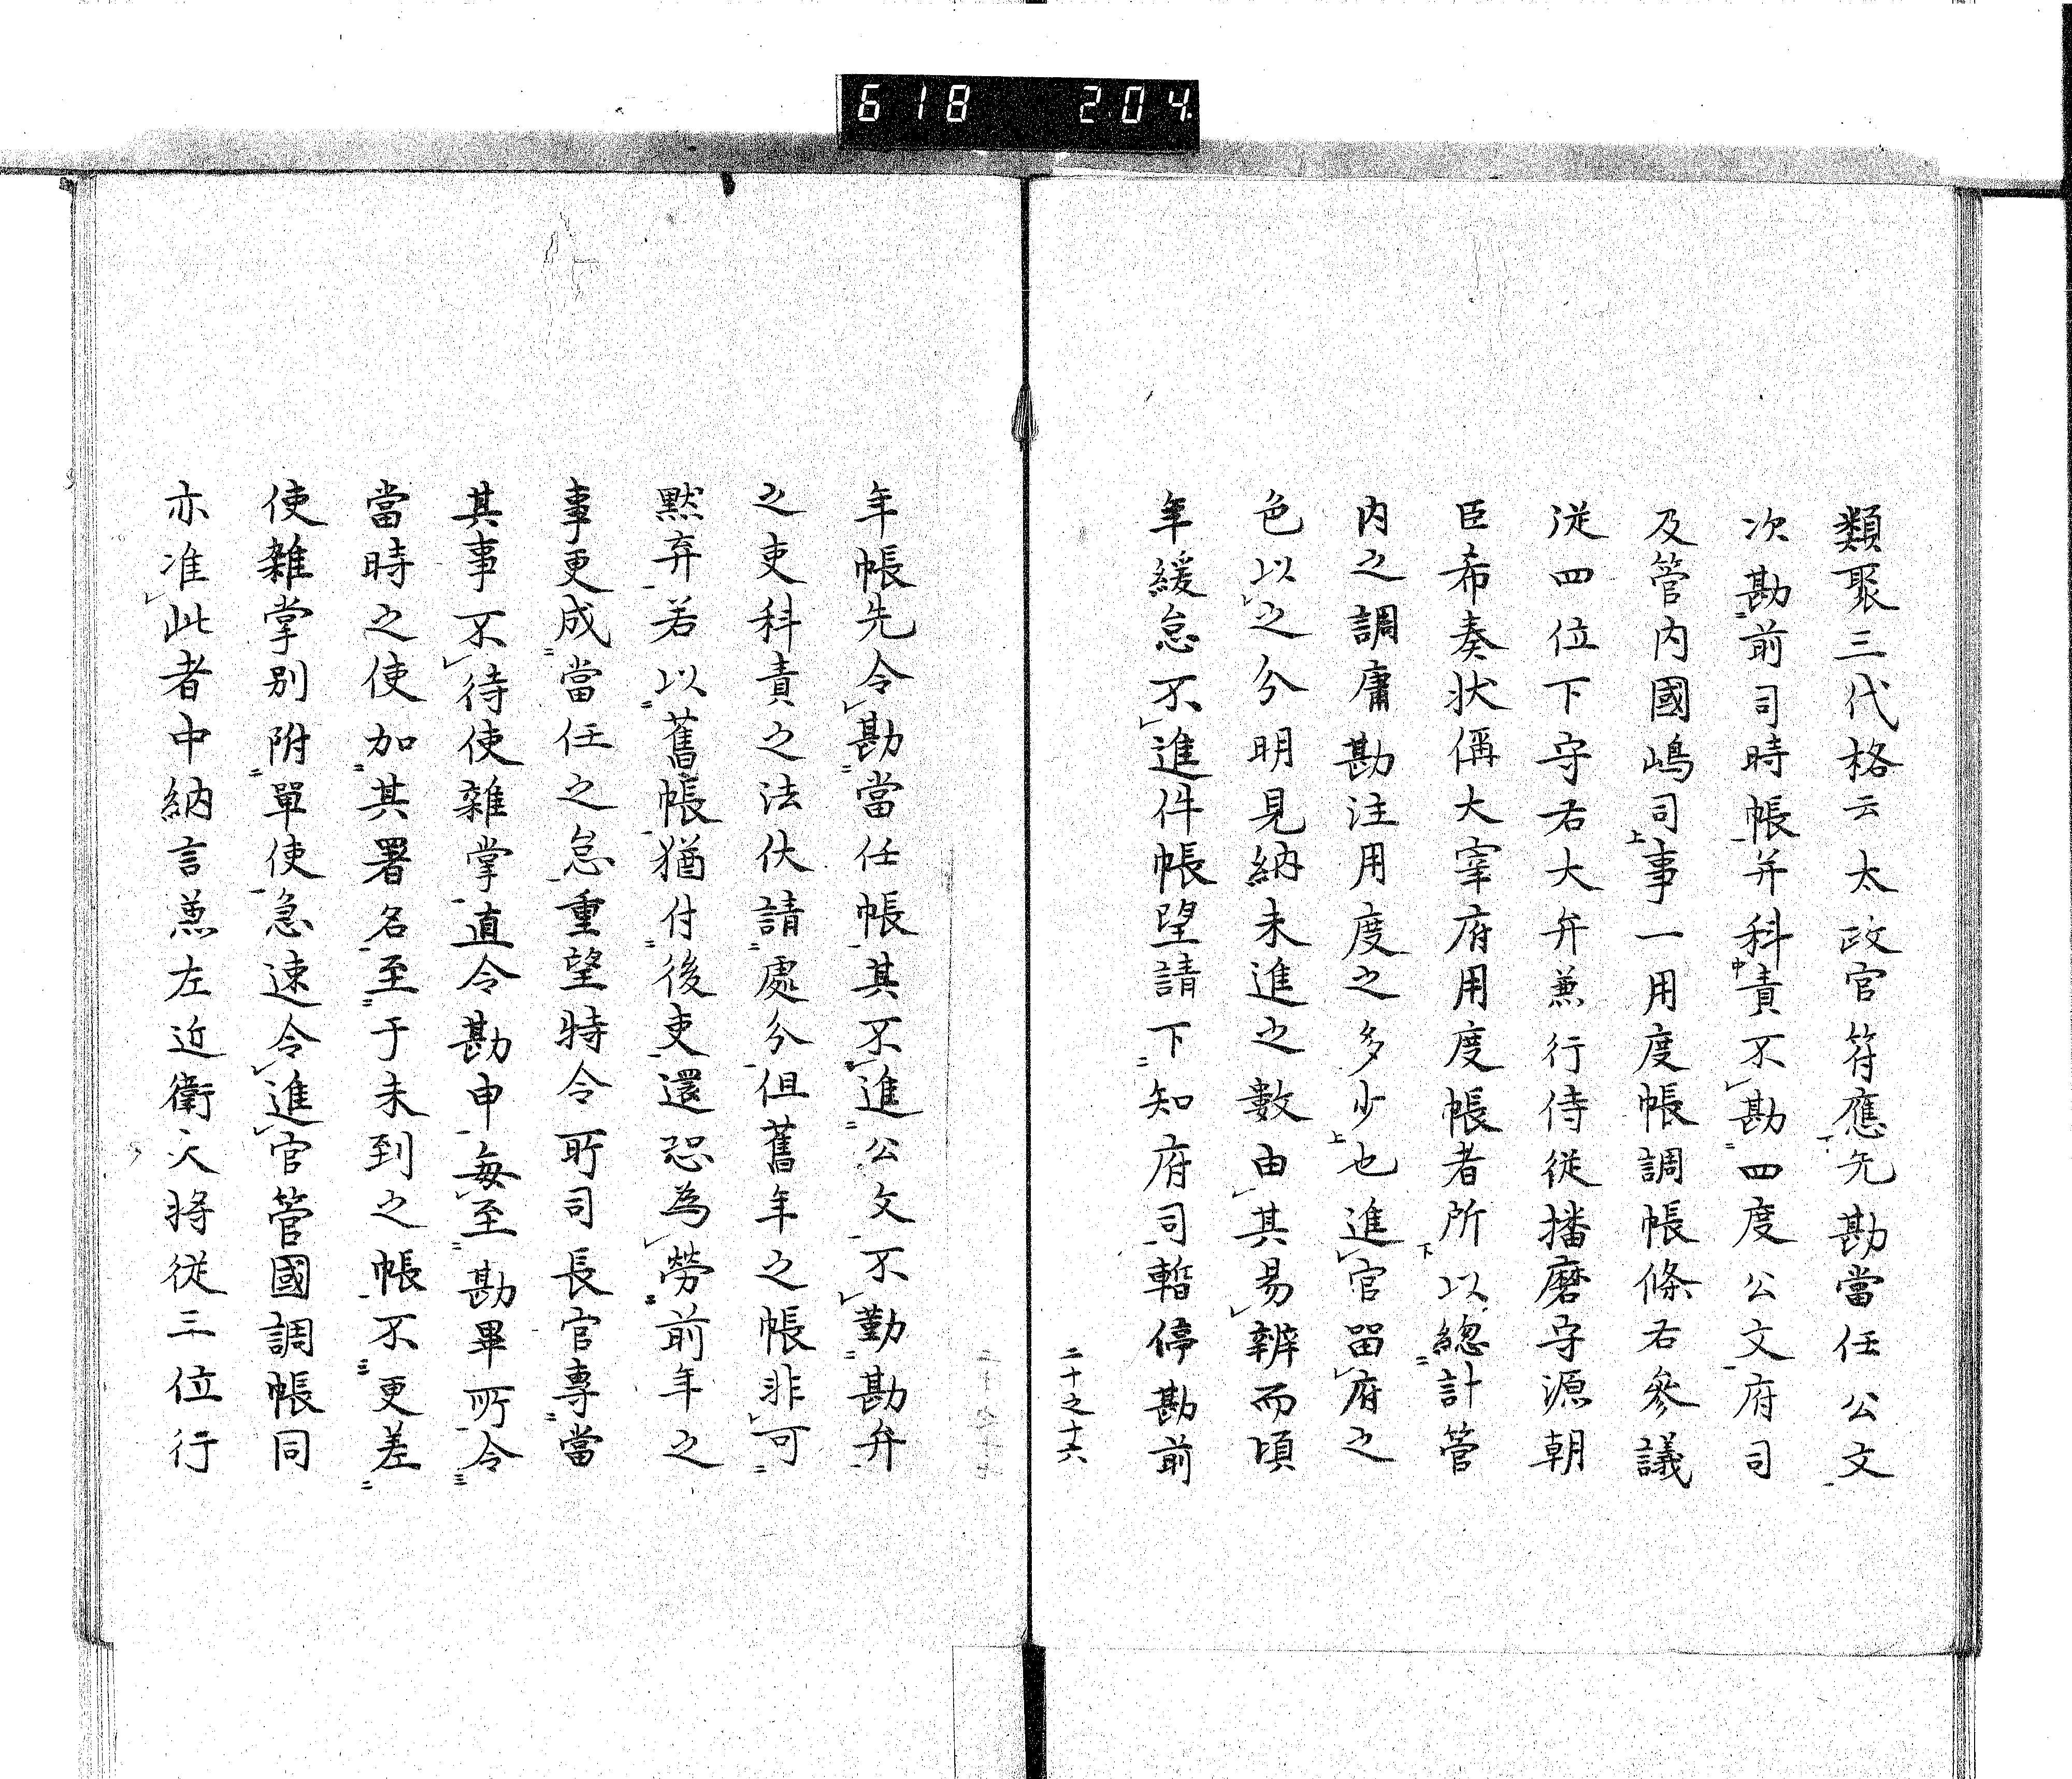 618 204
類聚三代格云太政官符應先勘當任公文
次勘前司時帳并科責不勘四度公文府司
及管内國嶋司事一用度帳調帳條右參議
従四位下守右大弁兼行侍従播磨守源朝
臣希奏状偁大宰府用度帳者所以總計管
内之調庸勘注用度之多少也進官留府之
色以之分明見納未進之數由其易辨而頃
年緩怠不進件帳望請下知府司暫停勘前
二十之十六
年帳先令勘當任帳其不進公文不勤勘弁
之吏科責之法伏請處分但舊年之帳非可
黙弃若以舊帳猶付後吏還恐為勞前年之
事更成當任之怠重望特令所司長官專當
其事不待使雜掌直令勘申毎至勘畢所令
當時之使加其署名至于未到之帳不更差
使雜掌別附單使急速令進官管國調帳同
亦准此者中納言兼左近衛大将従三位行